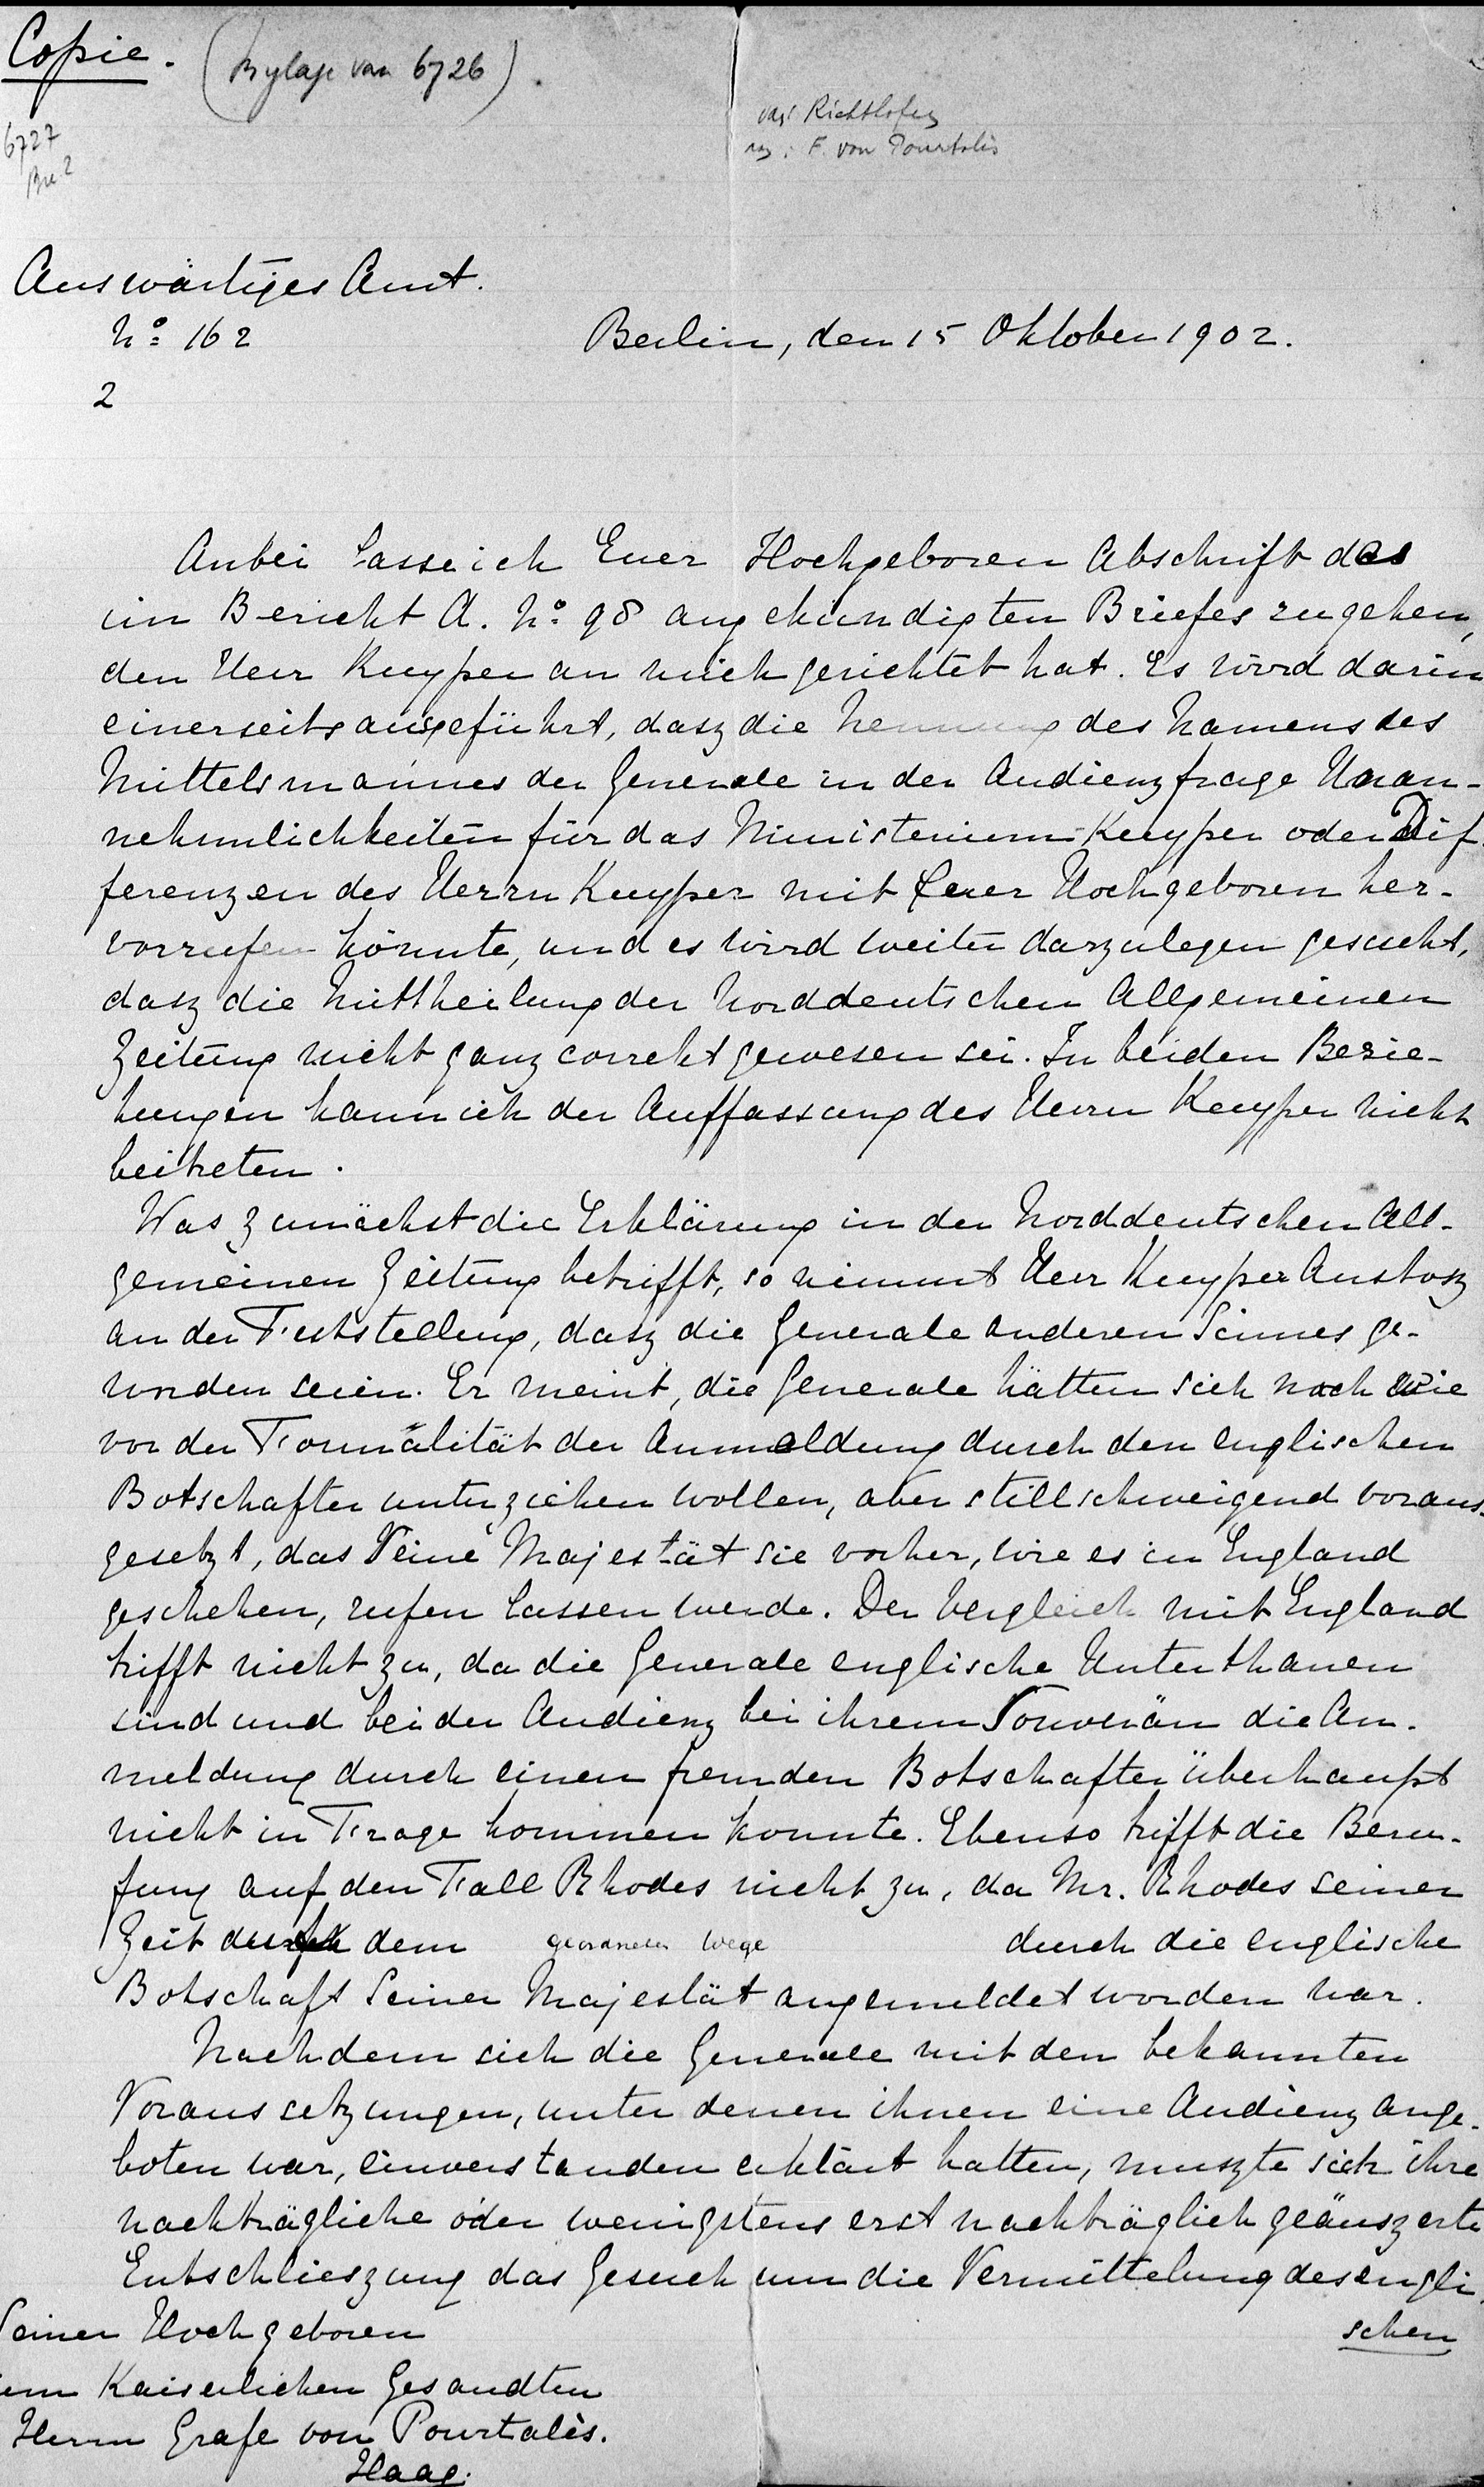 Copie. (Bylage van 6726).
6727
van Richthofen
F. von Pourtalès
Auswärtiges Amt.
No: 162
Berlin, den 15 Oktober 1902.
2
Anbei lasse ich Euer Hochgeboren Abschrift des
im Bericht A. No: 98 angekündigten Briefes zugehen,
den Herr Kuyper an mich gerichtet hat. Es wird darin
einerseits ausgeführt, dasz die Nennung des Namens des
Mittelsmannes der Generale in der Audienzfrage Unan-
nehmlichkeiten für das Ministerium-Kuyper oder Dif-
ferenzen des Herrn Kuyper mit Euer Hochgeboren her-
vorrufen könnte, und es wird weiter darzulegen gesucht,
dasz die Mittheilung der Norddeutschen Allgemeinen
Zeitung nicht ganz correkt gewesen sei. In beiden Bezie-
hungen kann ich der Auffassung des Herrn Kuyper nicht
beitreten.
Was zunächst die Erklärung in der Norddeutschen All-
gemeinen Zeitung betrifft, so nimmt Herr Kuyper Anstosz
an der Feststellung, dasz die Generale anderen Sinnes ge-
worden seien. Er meint, die Generale hätten sich nach wie
vor der Formalität der Anmeldung durch den englischen
Botschafter unterziehen wollen, aber stillschweigend voraus-
gesetzt, das Seine Majestät sie vorher, wie es in England
geschehen, rufen lassen werde. Der Vergleich mit England
trifft nicht zu, da die Generale englische Unterthanen
sind und bei der Audienz bei ihrem Souverän die An-
meldung durch einen fremden Botschafter überhaupt
nicht in Frage kommen konnte. Ebenso trifft die Beru-
fung auf den Fall Rhodes nicht zu, da Mr. Rhodes seiner
Zeit durch dem geordneten Wege durch die englische
Botschaft Seiner Majestät angemeldet worden war.
Nachdem sich die Generale mit den bekannten
Voraussetzungen, unter denen ihnen eine Audienz ange-
boten war, einverstanden erklärt hatten, muszte sich ihre
nachträgliche oder wenigstens erst nachträglich geäuszerte
Entschlieszung das Gesuch um die Vermittelung des engli-
schen
Seiner Hochgeboren
dem Kaiserlichen Gesandten
Herrn Grafe von Pourtalès.
Haag.